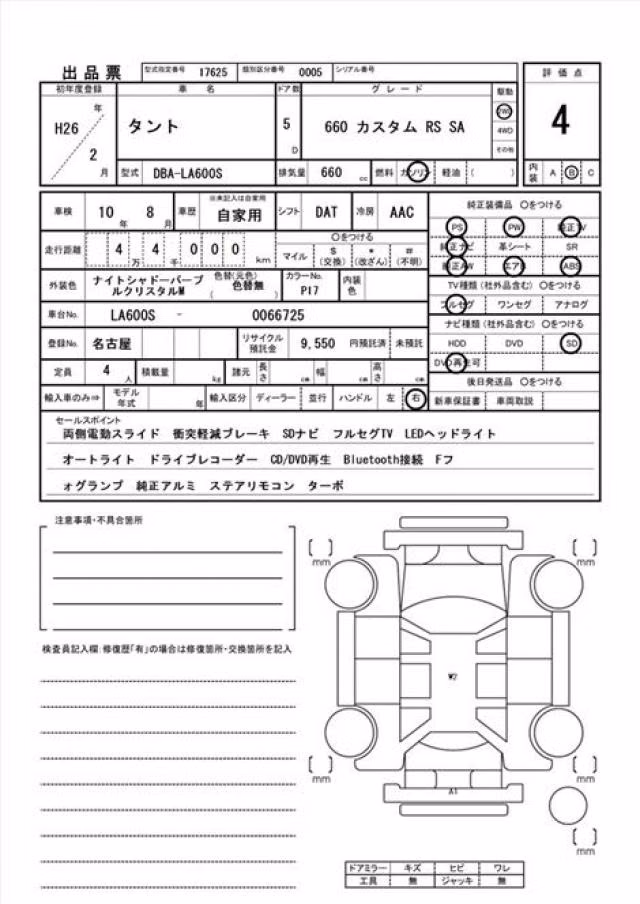 出品票 型式指定番号 17625 類別区分番号 0005 シリアル番号
評価点
初年度登録 車名 ドア数 グレード 駆動
H26年 2月 タント 5D 660 カスタム RS SA 2WD 4WD その他
4
型式 DBA-LA600S 排気量 660 cc 燃料 ガソリン 軽油 ( )
内装 A B C
車検 10年 8月 車歴 ※未記入は自家用 自家用 シフト DAT 冷房 AAC
純正装備品 ○をつける
PS PW 純正TV
純正ナビ 革シート SR
純正AW エアB ABS
走行距離 4万 4千 0 0 0 km ○をつける マイル $(交換) *(改ざん) #(不明)
TV種類(社外品含む) ○をつける
フルセグ ワンセグ アナログ
外装色 ナイトシャドーパープルクリスタルM 色替(元色) ( 色替無 ) カラーNo. P17 内装色
車台No. LA600S - 0066725
ナビ種類(社外品含む) ○をつける
HDD DVD SD
DVD再生可
登録No. 名古屋 リサイクル預託金 9,550 円預託済 未預託
定員 4人 積載量 kg 諸元 長さ cm 幅 cm 高さ cm
後日発送品 ○をつける
新車保証書 車両取説
輸入車のみ⇒ モデル年式 年 輸入区分 ディーラー 並行 ハンドル 左 右
セールスポイント
両側電動スライド 衝突軽減ブレーキ SDナビ フルセグTV LEDヘッドライト
オートライト ドライブレコーダー CD/DVD再生 Bluetooth接続 Fフ
ォグランプ 純正アルミ ステアリモコン ターボ
注意事項・不具合箇所
検査員記入欄:修復歴「有」の場合は修復箇所・交換箇所を記入
[ ] mm [ ] mm
W2
[ ] mm [ ] mm
A1
[ ] mm
ドアミラー キズ ヒビ ワレ
工具 無 ジャッキ 無